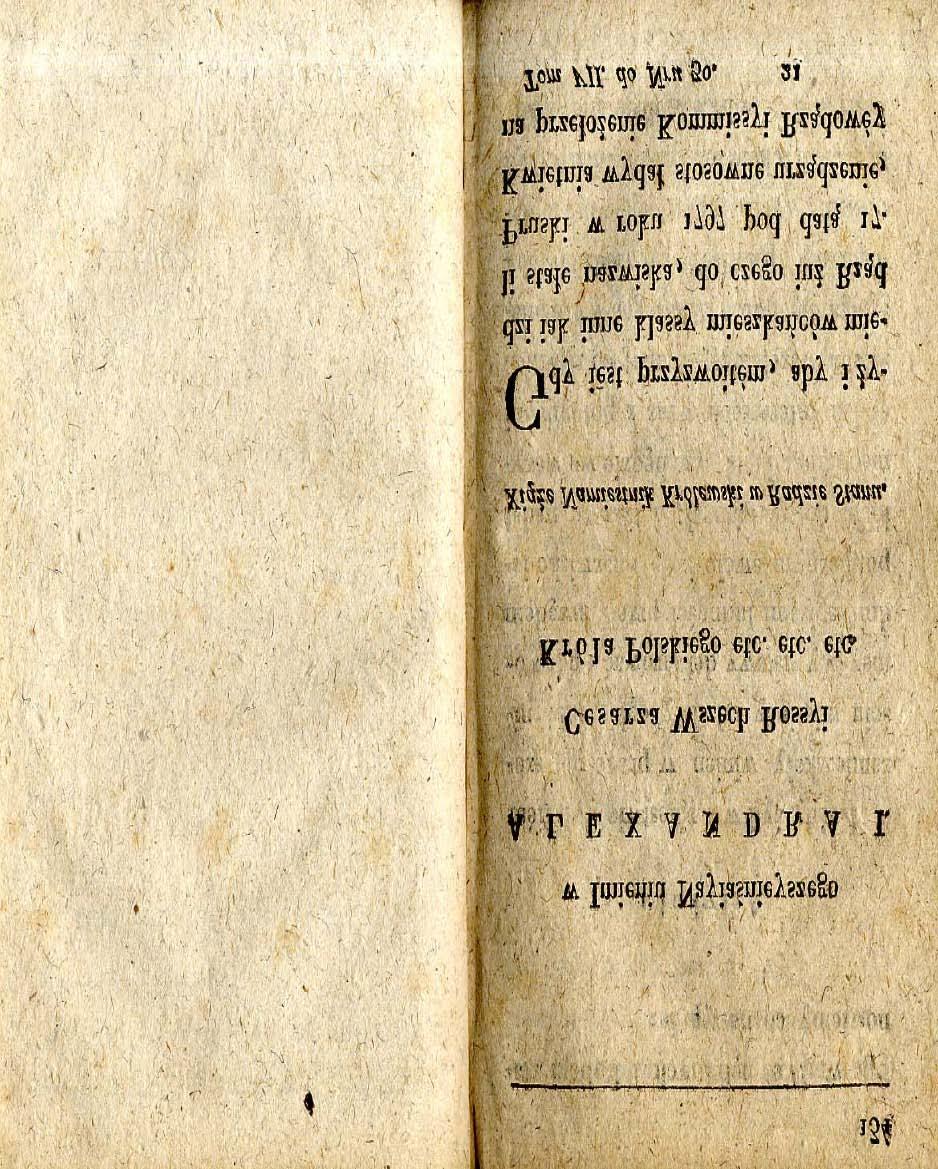 154
w Imieniu Nayiaśnieyszego
ALEXANDRA I.
Cesarza Wszech Rossyi
Króla Polskiego etc. etc. etc.
Xiąże Namiestnik Królewski w Radzie Stanu.
Gdy iest przyzwoitém, aby i ży-
dzi iak inne klassy mieszkańców mie-
li stałe nazwiska, do czego iuż Rząd
Pruski w roku 1797 pod datą 17.
Kwietnia wydał stosowne urządzenie,
na przełożenie Kommissyi Rządowéy
Tom VII. do Nru 30. 21